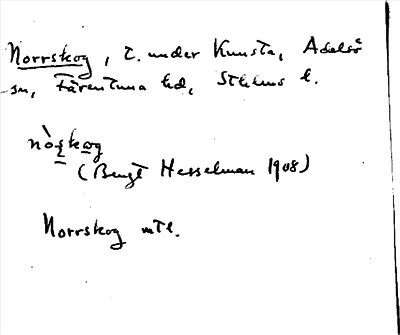 Norrskog, t. under Kunsta, Adelsö
sn, Färentuna hd, Sthlms l.
nòʂkog
(Bengt Hesselman 1908)
Norrskog mtl.